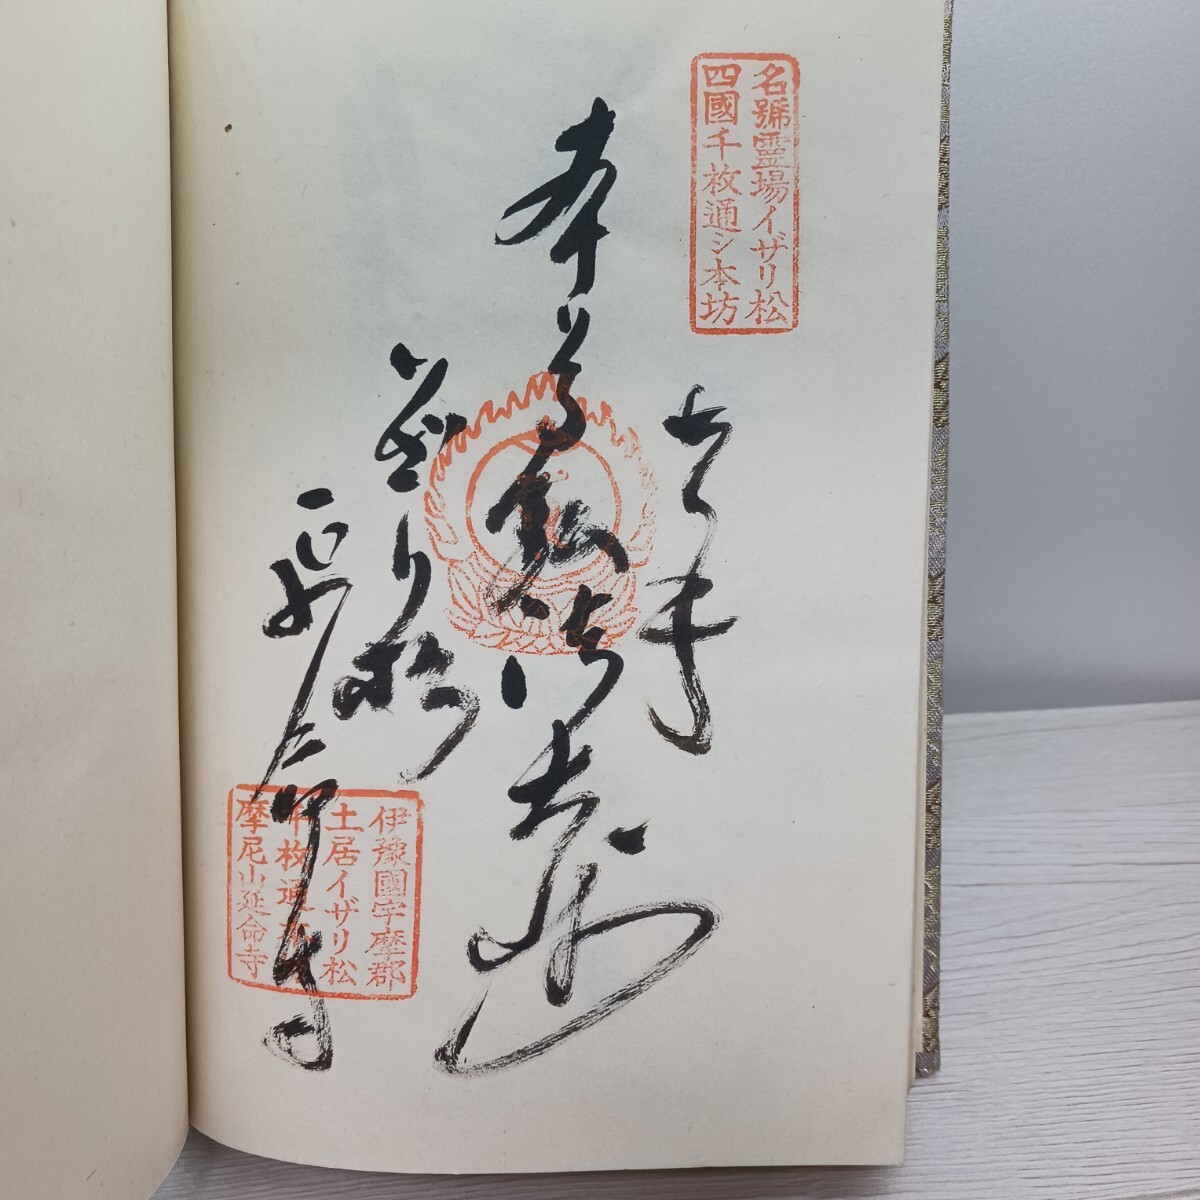 名號霊場イザリ松
四國千枚通シ本坊
本尊弘法大師
延命寺
伊豫國宇摩郡
土居イザリ松
千枚通
摩尼山延命寺